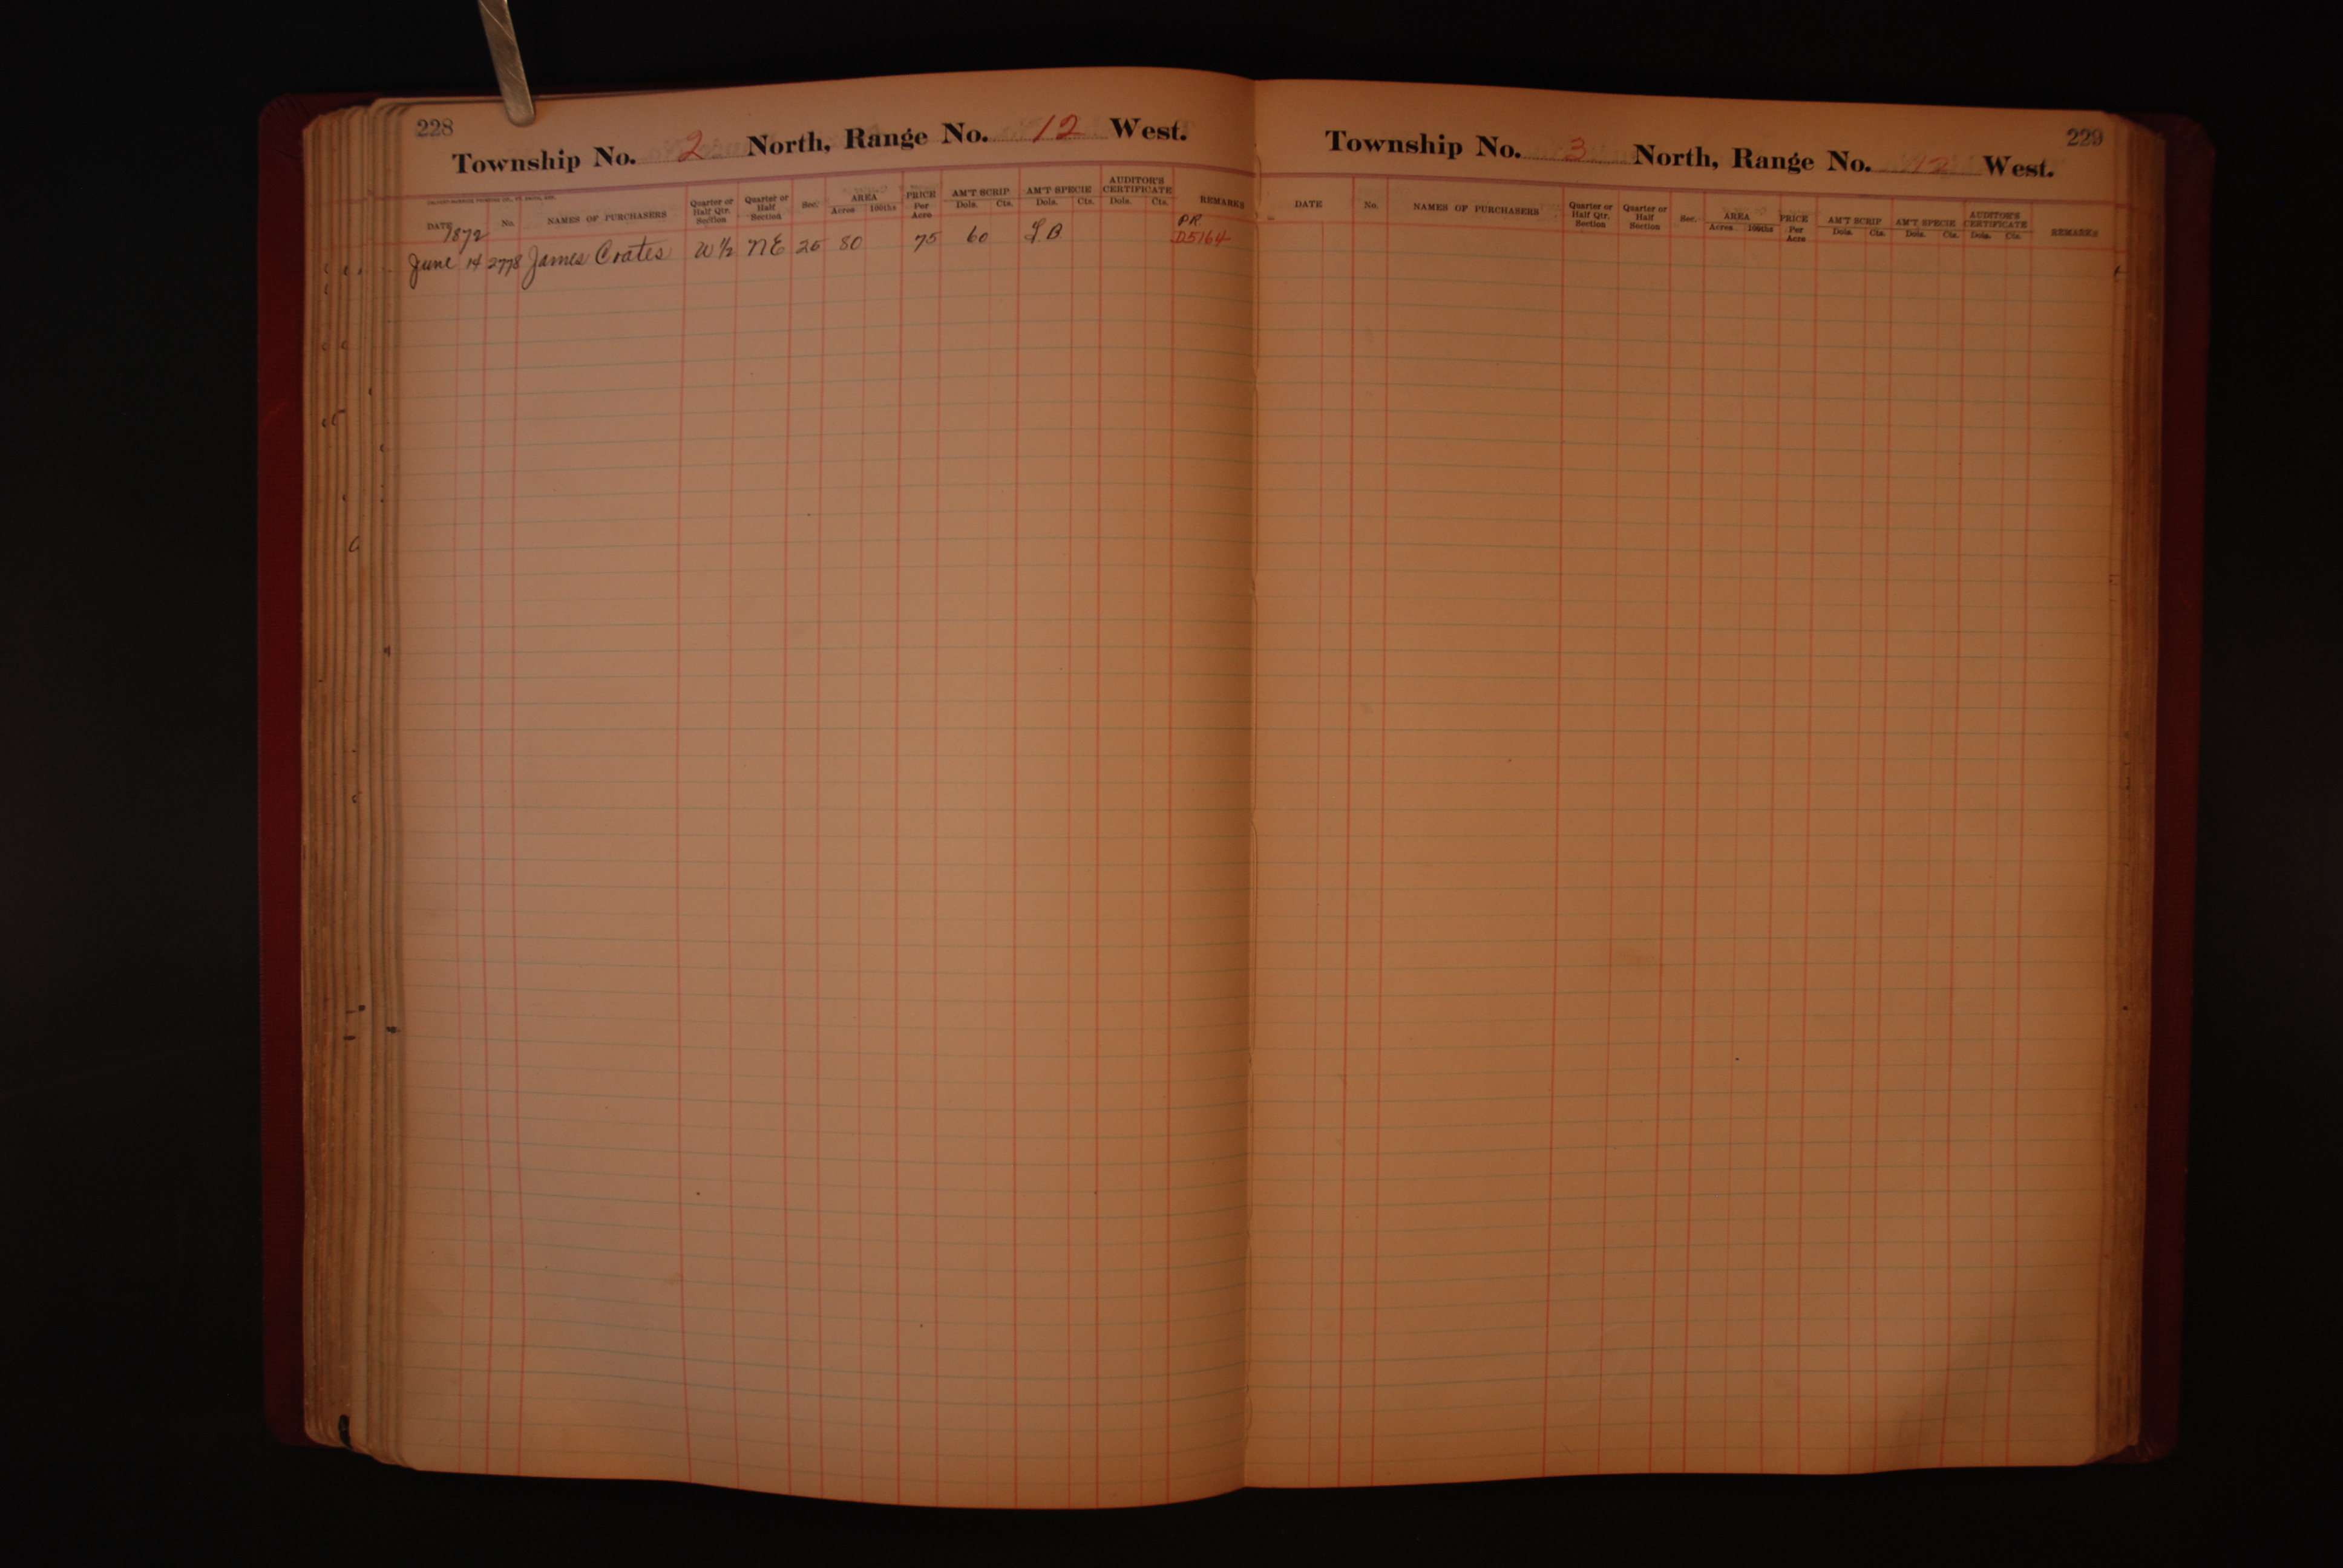 228
Township No. 2 North, Range No. 12 West.
DATE No. NAMES OF PURCHASERS Quarter or Half Qtr. Section Quarter or Half Section Sec. AREA Acres 100ths PRICE Per Acre AM'T SCRIP Dols. Cts. AM'T SPECIE Dols. Cts. AUDITOR'S CERTIFICATE Dols. Cts. REMARKS
1872 PR.
June 14 2778 James Coates W ½ NE 25 80 75 60 D5164
229
Township No. 3 North, Range No. 12 West.
DATE No. NAMES OF PURCHASERS Quarter or Half Qtr. Section Quarter or Half Section Sec. AREA Acres 100ths PRICE Per Acre AM'T SCRIP Dols. Cts. AM'T SPECIE Dols. Cts. AUDITOR'S CERTIFICATE Dols. Cts. REMARKS